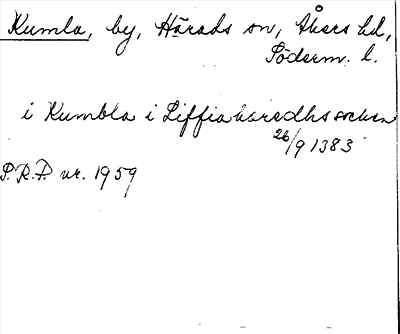 Kumla, by, Härads sn, Åkers hd,
Söderm. l.
i Kumbla i Liffiahæredhs sochen
26/9 1383
P.R.P. nr. 1959